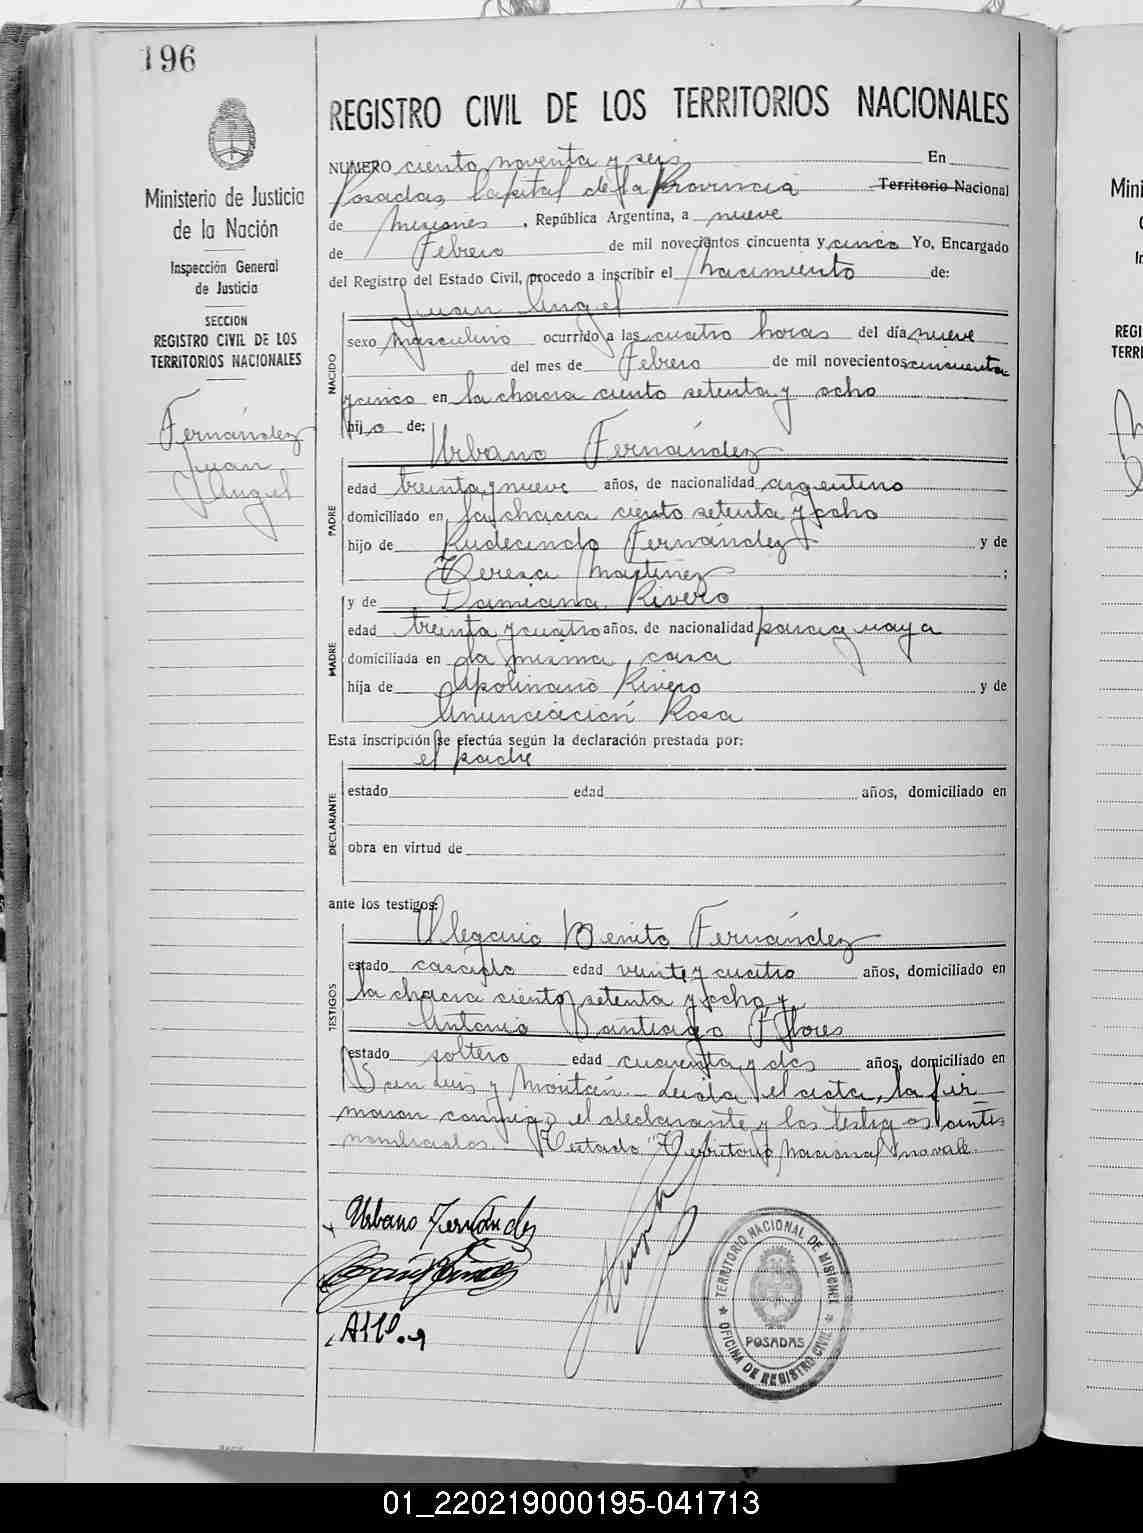 196
Ministerio de Justicia
de la Nación
Inspección General
de Justicia
SECCION
REGISTRO CIVIL DE LOS
TERRITORIOS NACIONALES
Fernández
Juan
Angel
REGISTRO CIVIL DE LOS TERRITORIOS NACIONALES
NUMERO ciento noventa y seis En
Posadas Capital de la Provincia Territorio Nacional
de Misiones, República Argentina, a nueve
de Febrero de mil novecientos cincuenta y cinco Yo, Encargado
del Registro del Estado Civil, procedo a inscribir el Nacimiento de:
Juan Angel
NACIDO
sexo masculino ocurrido a las cuatro horas del día nueve
del mes de Febrero de mil novecientos cincuenta
y cinco en la chacra ciento setenta y ocho
hijo de:
Urbano Fernández
PADRE
edad treinta y nueve años, de nacionalidad argentino
domiciliado en la chacra ciento setenta y ocho
hijo de Rudecindo Fernández y de
Teresa Martínez ;
y de Damiana Rivero
MADRE
edad treinta y cuatro años, de nacionalidad paraguaya
domiciliada en la misma casa
hija de Apolinario Rivero y de
Anunciación Rosa
Esta inscripción se efectúa según la declaración prestada por:
el padre
DECLARANTE
estado edad años, domiciliado en
obra en virtud de
ante los testigos:
Olegario Benito Fernández
TESTIGOS
estado casado edad veinte y cuatro años, domiciliado en
la chacra ciento setenta y ocho y
Antonio Santiago Flores
estado soltero edad cuarenta y dos años, domiciliado en
San Luis y Leida el acta, la fir
maron conmigo el declarante y los testigos antes
nombrados. Testado "Territorio Nacional" no vale.
Urbano Fernández
TERRITORIO NACIONAL DE MISIONES
POSADAS
OFICINA DE REGISTRO CIVIL
Mini
REGI
TERR
01_220219000195-041713